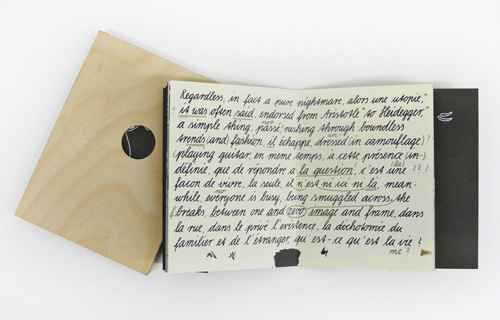 Regardless, in fact a pure nightmare, alors une utopie,"
it was often said, endorsed from Aristotle "to Heidegger,"
a simple thing, passé, rushing through boundless
trends (and) fashion, il échappe, dressed (in camouflage)
(playing guitar, en meme temps, à cette présence in-)
définie, que de répondre a la question, c'est une (la) ??!
facon de vivre, la seule, il n'est ni ici ni là, mean-
while, everyone is busy, being smuggled across, the
(breaks, between one and zero) image and frame, dans
la rue, dans le privé l'existence, la dichotomie du
familier et de l'étranger, qu'est-ce qu'est la vie?
me?